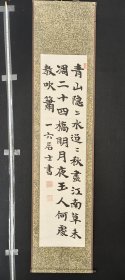 青山隠〻水迢〻秋盡江南草未
凋二十四橋明月夜玉人何處
教吹簫　一六居士書